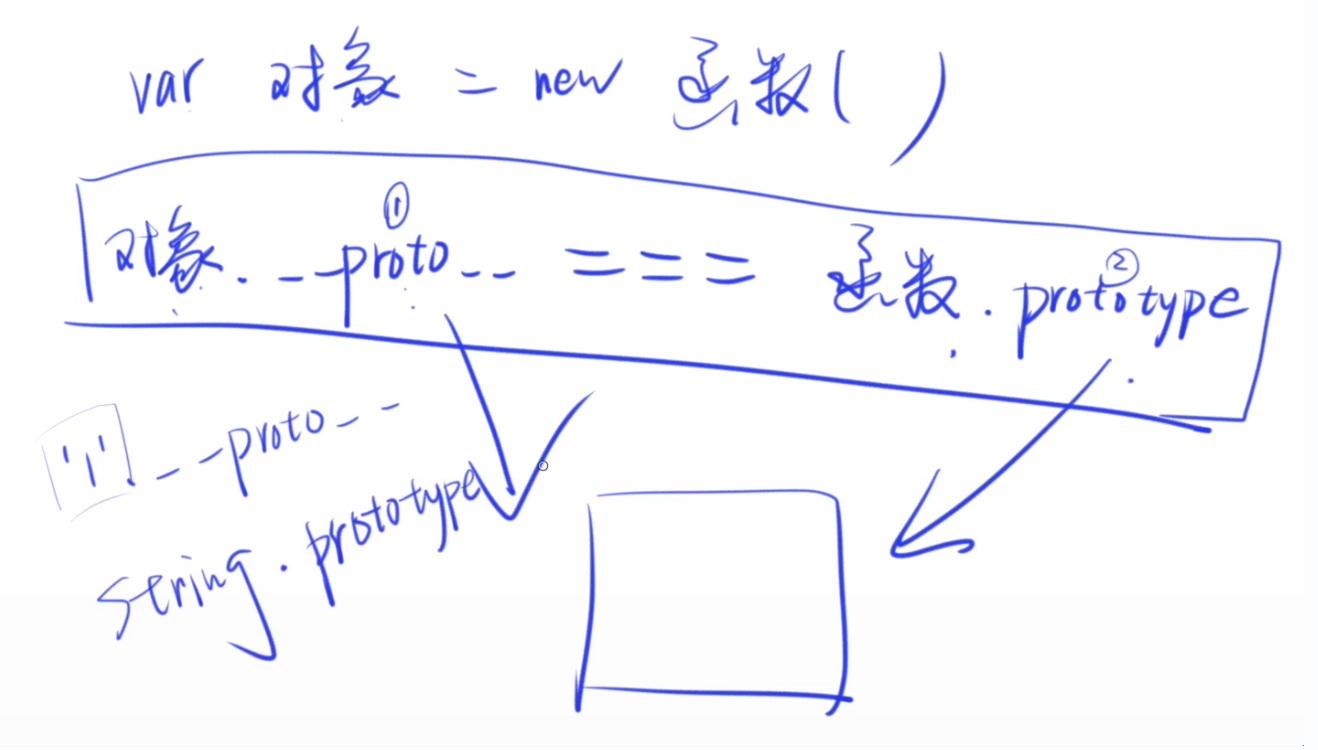 var 对象 = new 函数( )
①
对象.__proto__ === 函数.prototype
②
'1'.__proto__
String.prototype